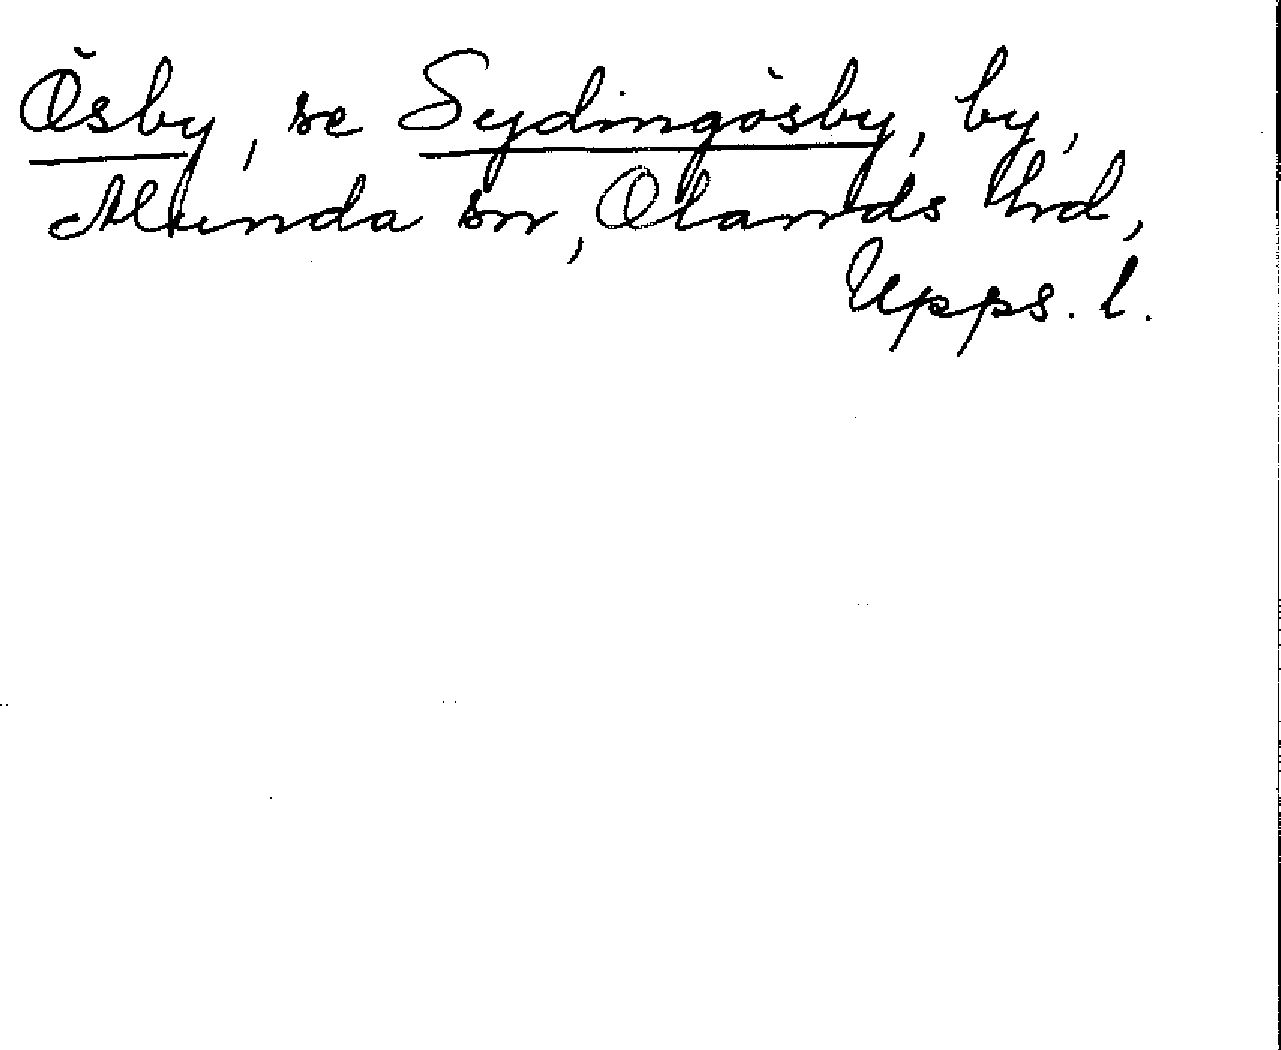 Ösby, se Sydingösby, by,
Alunda sn, Olands hrd,
Upps. l.